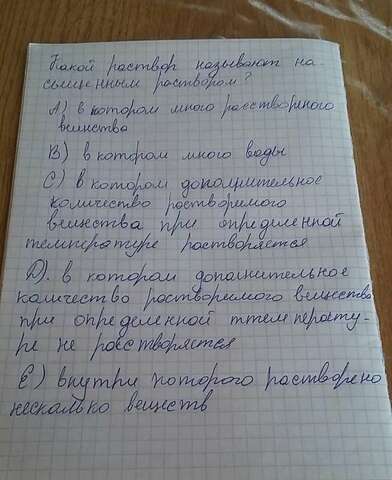 Какой раствор называют на-
сыщенным раствором?
A) в котором много расстворённого
вещества
B) в котором много воды
C) в котором дополнительное
количество растворимого
вещества при определенной
температуре растворяется
D). в котором дополнительное
количество растворимого вещества
при определенной ттемперату-
ре не расстворяется
E) внутри которого растворено
несколько веществ